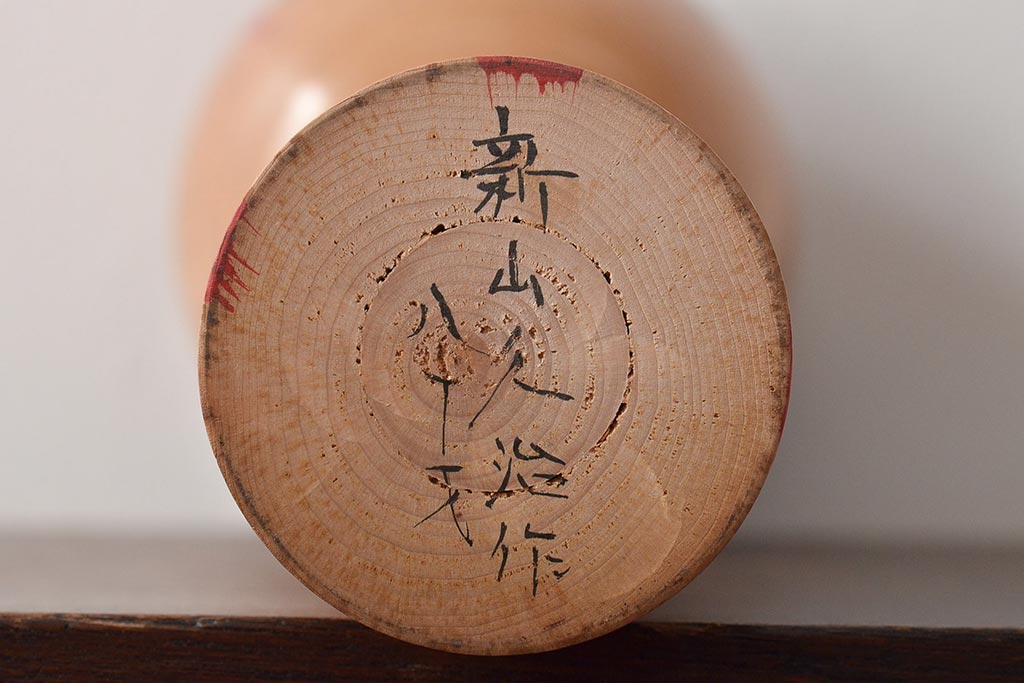 新山久治作
八十才